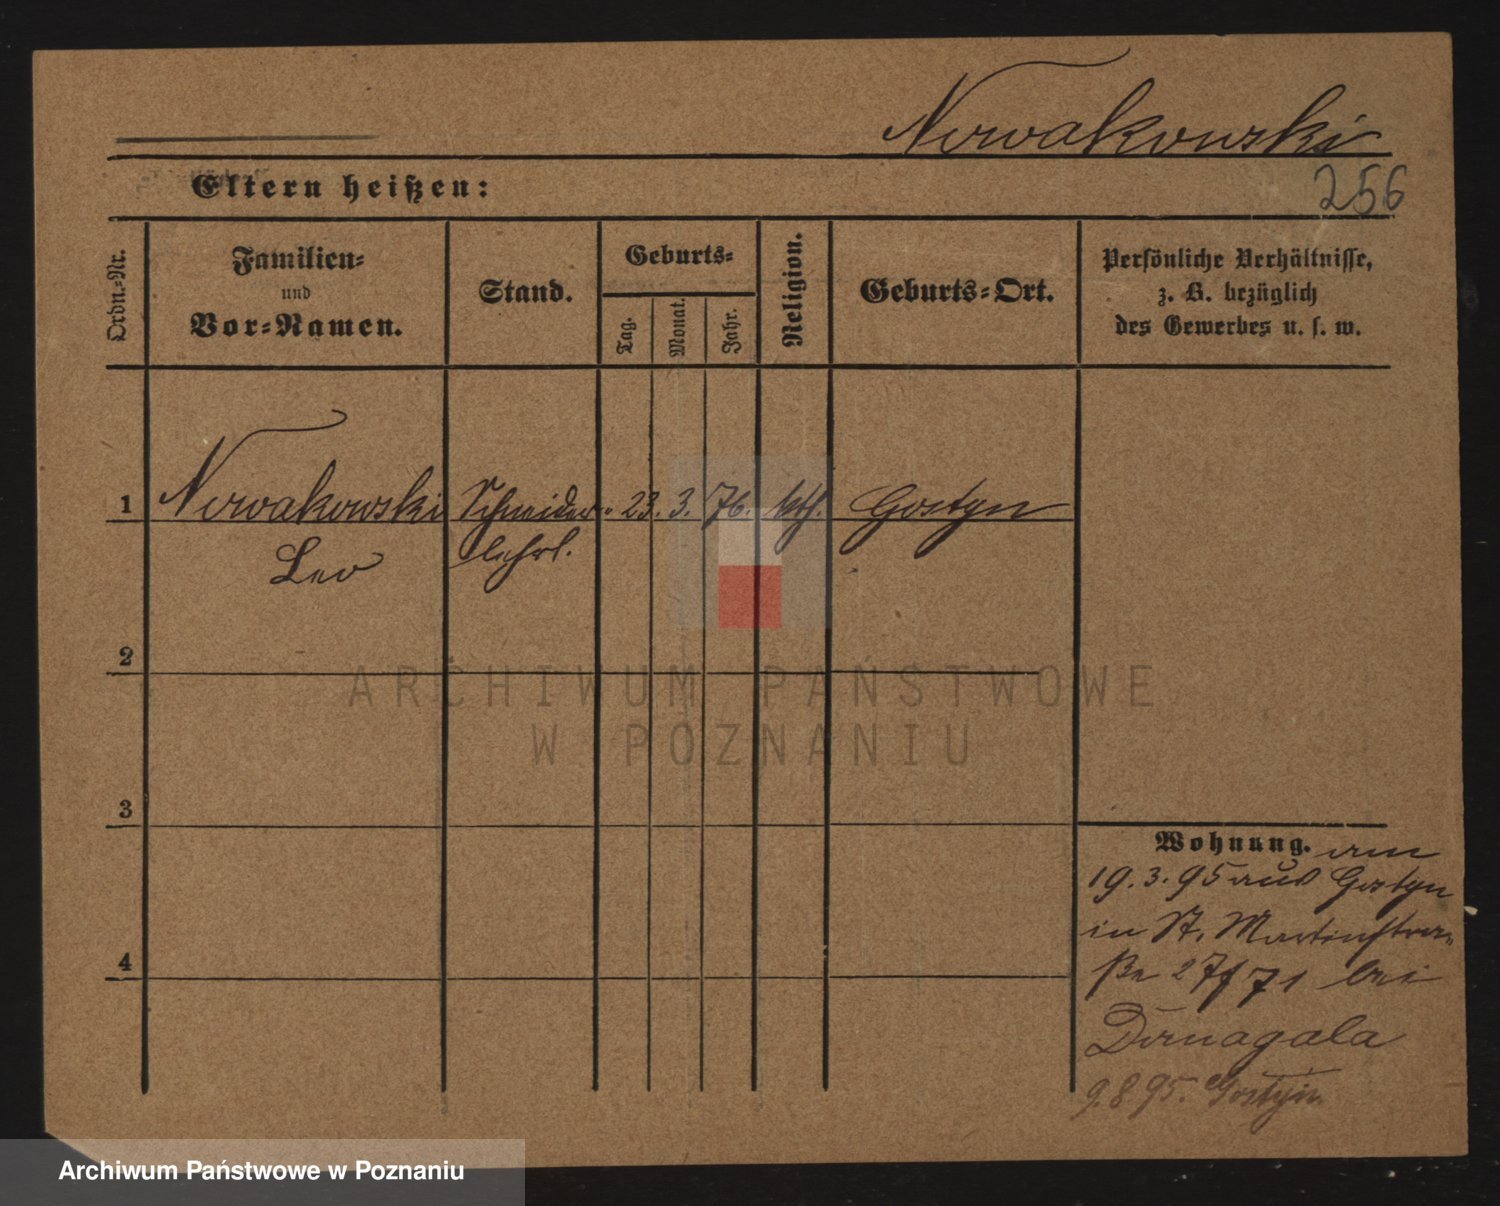 Nowakowski
Eltern heißen:
256
Ordn.-Nr.
Familien-
und
Vor-Namen.
Stand.
Geburts-
Tag.
Monat.
Jahr.
Religion.
Geburts-Ort.
Persönliche Verhältnisse,
z. B. bezüglich
des Gewerbes u. s. w.
1 Nowakowski Schneider- 23. 3. 76. kth. Gostyn
Leo lehrl.
2
3
4
Wohnung. am
19.3.95 aus Gostyn
in St. Martinstra-
ße 27 bei
9.8.95. Gostyn
ARCHIWUM PAŃSTWOWE
W POZNANIU
Archiwum Państwowe w Poznaniu